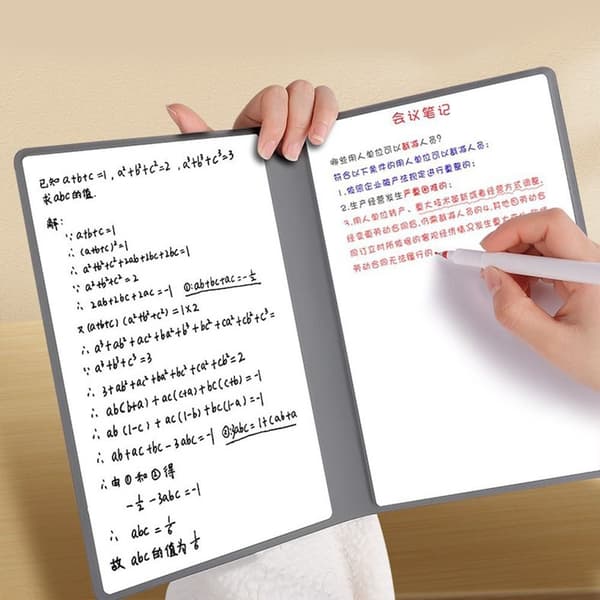 已知 a+b+c=1, a²+b²+c²=2, a³+b³+c³=3
求abc的值.
解:
∵ a+b+c=1
∴ (a+b+c)²=1
∴ a²+b²+c²+2ab+2bc+2ac=1
∵ a²+b²+c²=2
∴ 2ab+2bc+2ac=-1 ①:ab+bc+ac=-½
又(a+b+c)(a²+b²+c²)=1×2
∴ a³+ab²+ac²+ba²+b³+bc²+ca²+cb²+c³=
∵ a³+b³+c³=3
∴ 3+ab²+ac²+ba²+bc²+ca²+cb²=2
∴ ab(b+a)+ac(c+a)+bc(c+b)=-1
∴ ab(1-c)+ac(1-b)+bc(1-a)=-1
∴ ab+ac+bc-3abc=-1 ②:3abc=1+(ab+a
∴由①和②得
-½-3abc=-1
∴ abc=1/6
故 abc的值为1/6
会议笔记
哪些用人单位可以裁减人员?
符合以下条件的用人单位可以裁减人员:
1.依照企业破产法规定进行重整的;
2.生产经营发生严重困难的;
3.用人单位转产、重大技术革新或者经营方式调整,
经变更劳动合同后,仍需裁减人员的4.其他因劳动合
同订立时所依据的客观经济情况发生重大变化,
劳动合同无法履行的